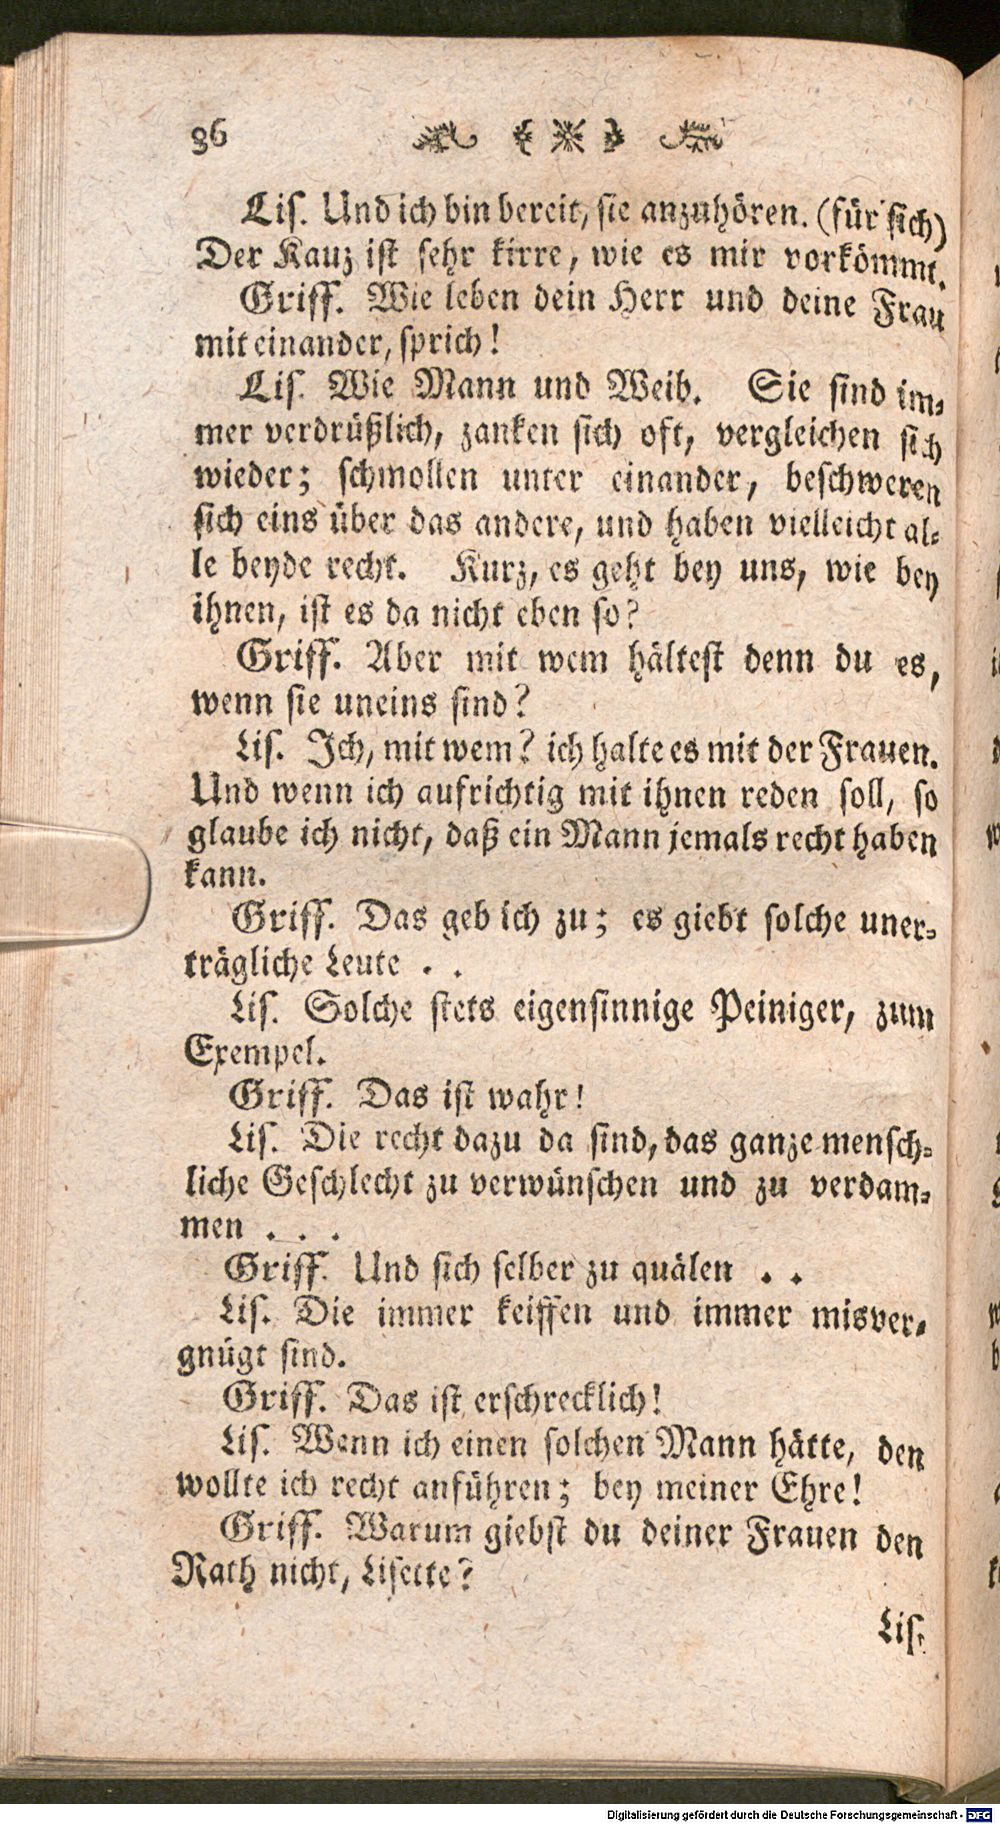 86
Lis. Und ich bin bereit, sie anzuhören. (für sich)
Der Kauz ist sehr kirre, wie es mir vorkömmt.
Griff. Wie leben dein Herr und deine Frau
mit einander, sprich!
Lis. Wie Mann und Weib. Sie sind im-
mer verdrüßlich, zanken sich oft, vergleichen sich
wieder; schmollen unter einander, beschweren
sich eins über das andere, und haben vielleicht al-
le beyde recht. Kurz, es geht bey uns, wie bey
ihnen, ist es da nicht eben so?
Griff. Aber mit wem hältest denn du es,
wenn sie uneins sind?
Lis. Ich, mit wem? ich halte es mit der Frauen.
Und wenn ich aufrichtig mit ihnen reden soll, so
glaube ich nicht, daß ein Mann jemals recht haben
kann.
Griff. Das geb ich zu; es giebt solche uner-
trägliche Leute . .
Lis. Solche stets eigensinnige Peiniger, zum
Exempel.
Griff. Das ist wahr!
Lis. Die recht dazu da sind, das ganze mensch-
liche Geschlecht zu verwünschen und zu verdam-
men . . .
Griff. Und sich selber zu quälen . .
Lis. Die immer keiffen und immer misver-
gnügt sind.
Griff. Das ist erschrecklich!
Lis. Wenn ich einen solchen Mann hätte, den
wollte ich recht anführen; bey meiner Ehre!
Griff. Warum giebst du deiner Frauen den
Rath nicht, Lisette?
Lis.
Digitalisierung gefördert durch die Deutsche Forschungsgemeinschaft - DFG